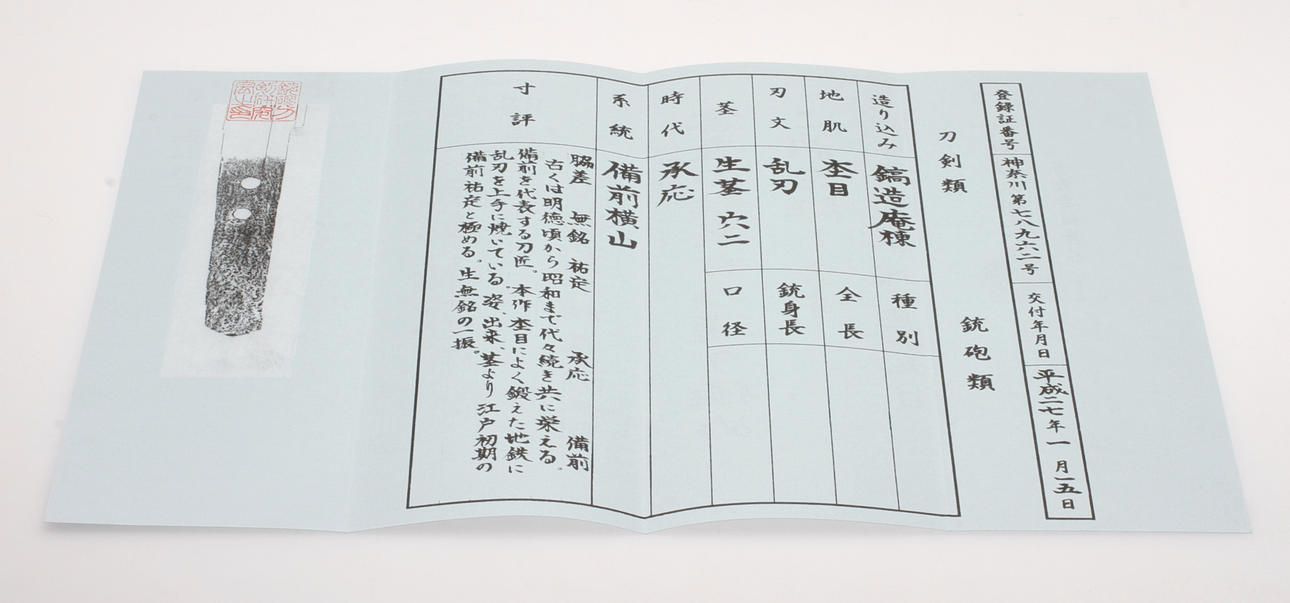 登録証番号 神奈川第七八九六二号 交付年月日 平成二七年一月一五日
刀剣類 銃砲類
造り込み 鎬造庵棟 種別
地肌 杢目 全長
刃文 乱刃 銃身長
茎 生茎 穴二 口径
時代 承応
系統 備前横山
寸評
脇差 無銘 祐定 承応 備前
古くは明徳頃から昭和まで代々続き共に栄える。
備前を代表する刀匠。本作杢目によく鍛えた地鉄に
乱刃を上手に焼いている。姿、出来、茎より江戸初期の
備前祐定と極める。生無銘の一振。